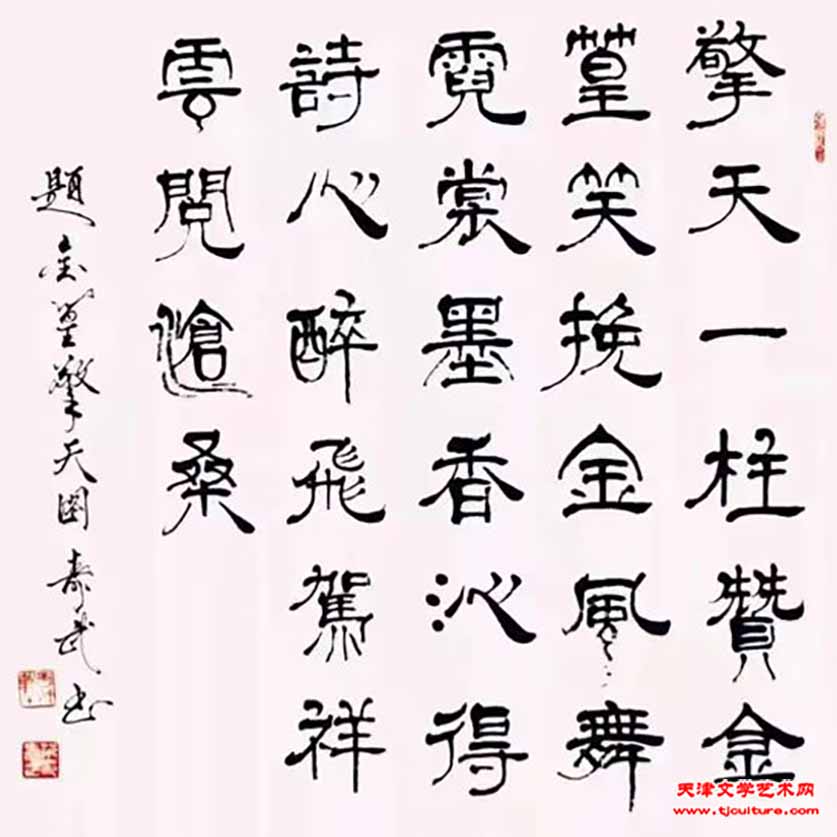 擎天一柱贊金
篁笑挽金風舞
霓裳墨香沁得
詩心醉飛駕祥
雲閱滄桑
題金篁擎天图 武书
天津文学艺术网
www.tjculture.com